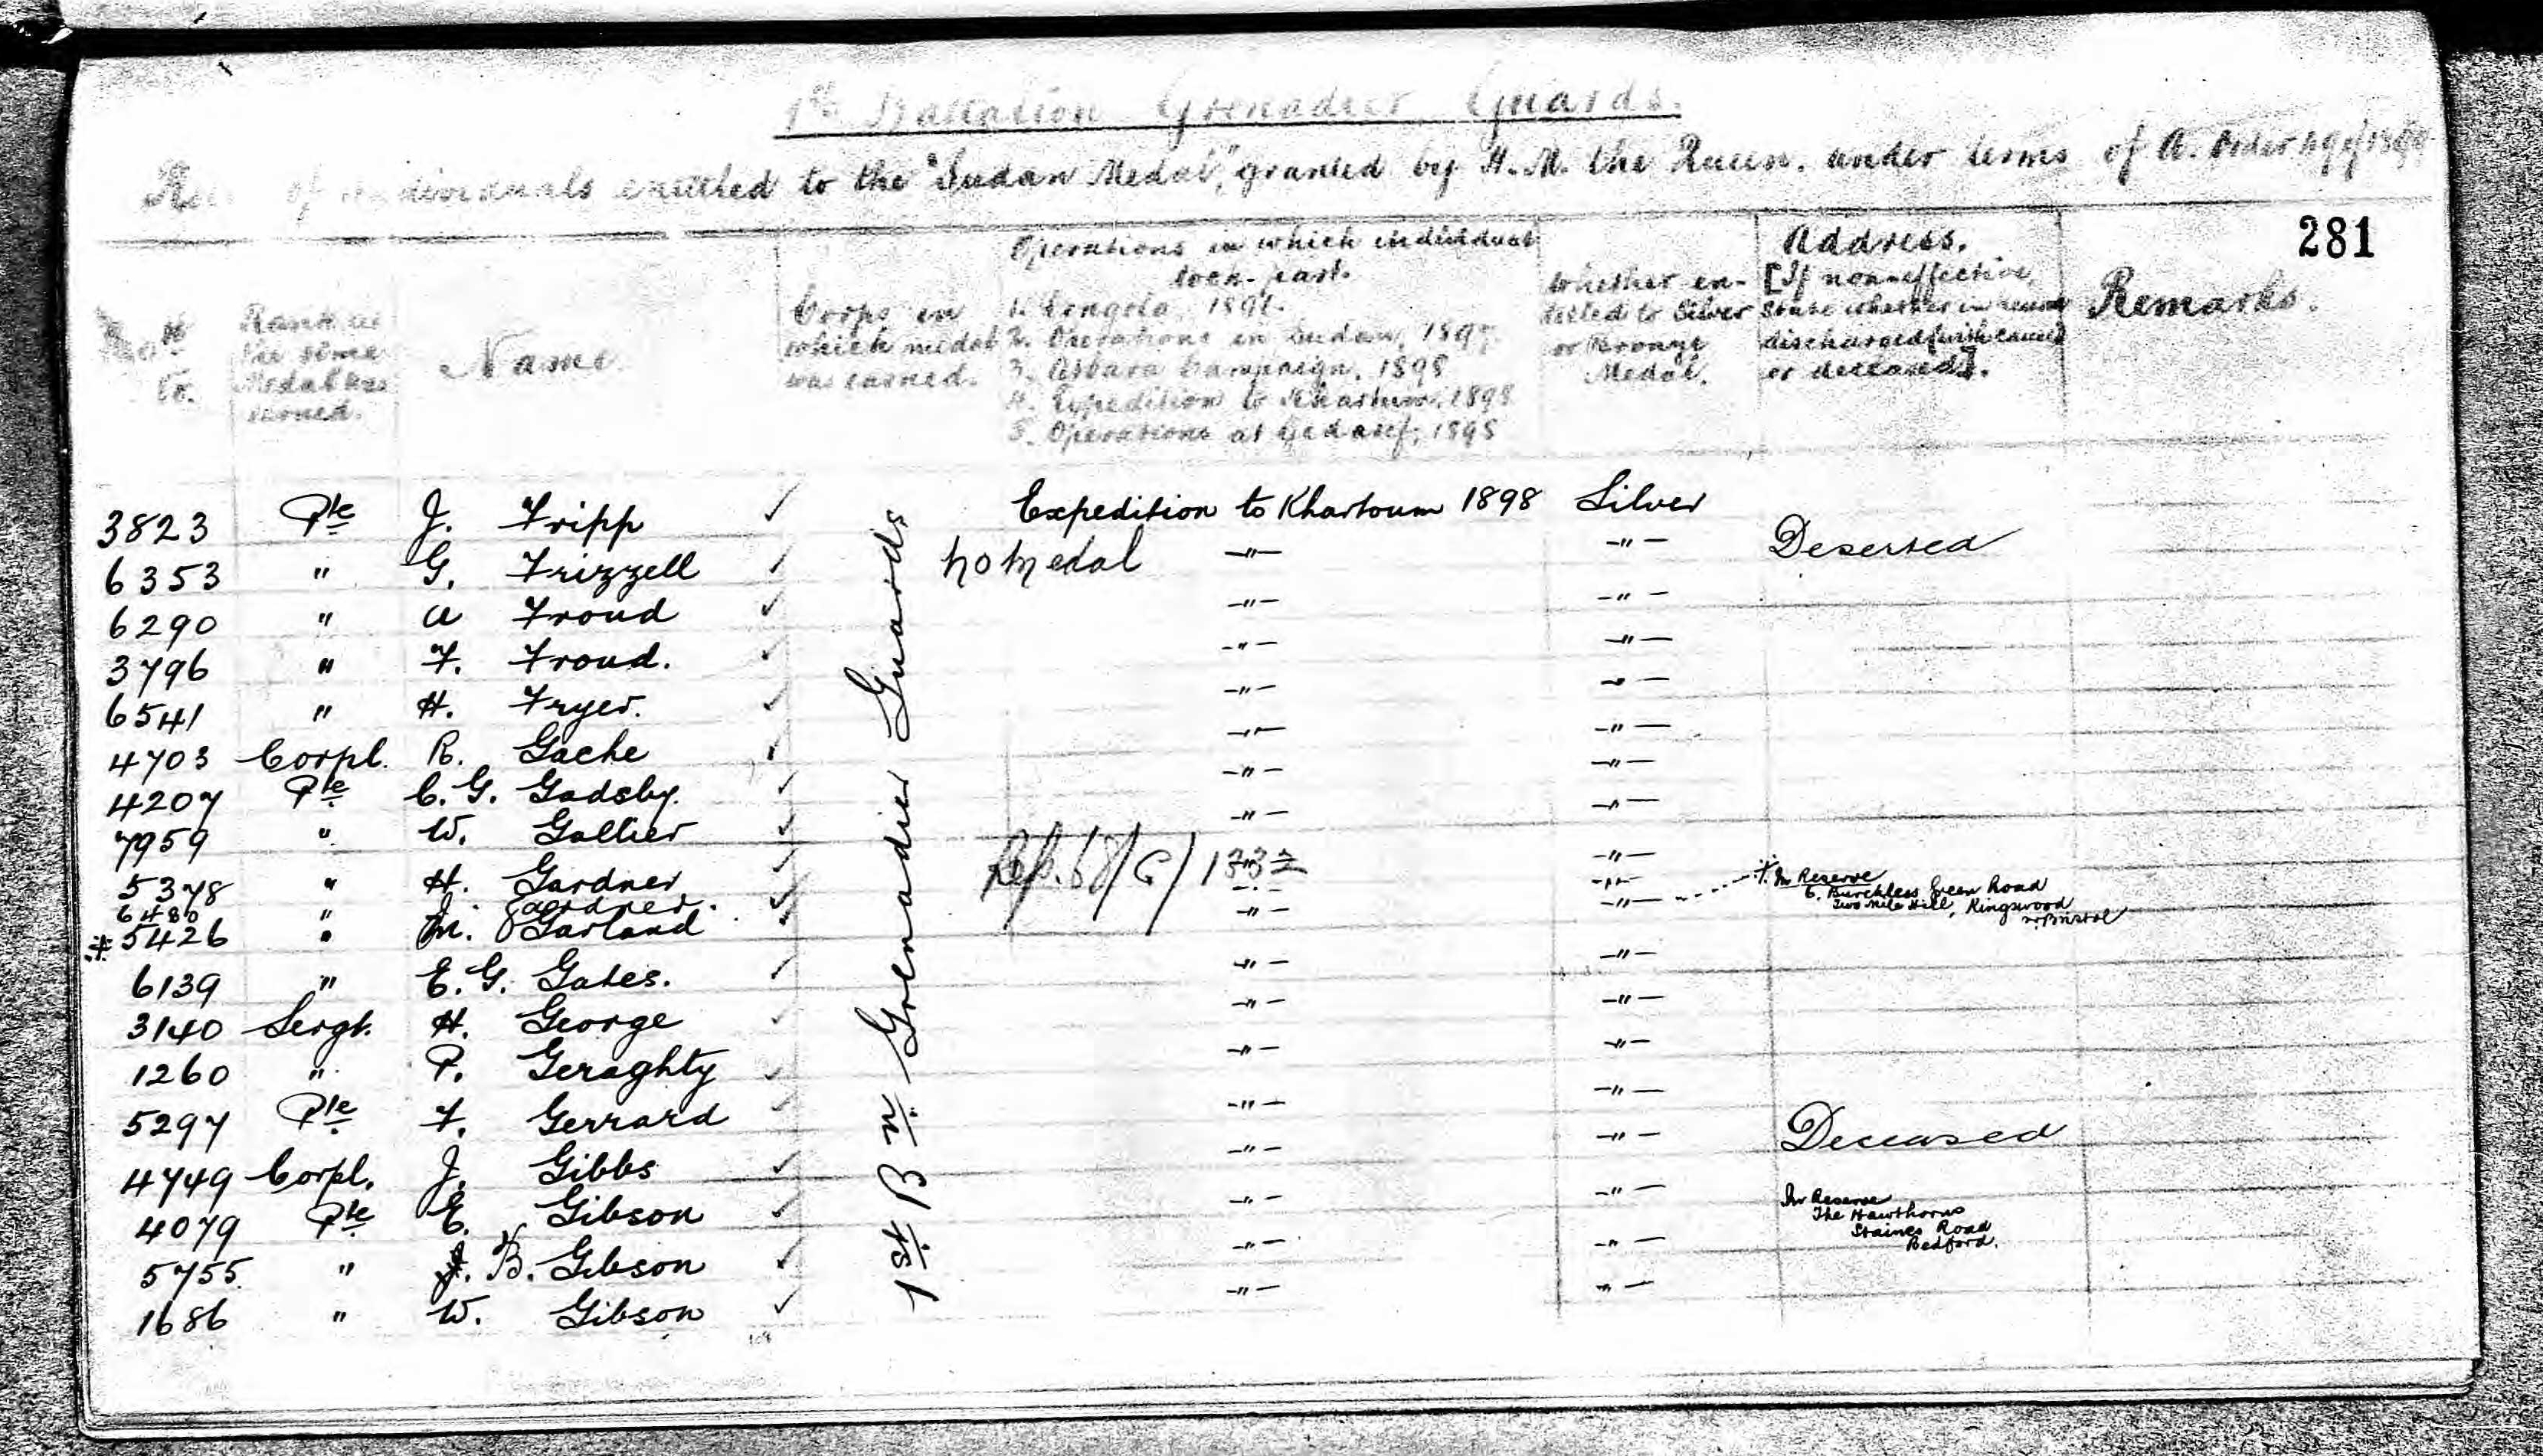 1st Battalion Grenadier Guards.
of individuals entitled to the "Sudan Medal," granted by H.M. the Queen. under terms of A. Order
281
Rank at the time Medal was earned.
Name
Corps in which medal was earned.
Operations in which individual took part.
1. Dongola, 189
2. Operations in Sudan, 1897
3. Atbara Campaign, 1898
4. Expedition to Khartum, 1898
5. Operations at Gedaref, 1898
Whether entitled to Silver or Bronze Medal.
Address. [If non-effective, state whether in reserve discharged (with cause) or deceased].
Remarks.
1st Bn. Grenadier Guards
3823 Pte J. Fripp ✓ Expedition to Khartoum 1898 Silver
6353 " G. Frizzell ✓ No Medal —"— —"— Deserted
6290 " A Froud ✓ —"— —"—
3796 " F. Froud. ✓ —"— —"—
6541 " H. Fryer. ✓ —"— —"—
4703 Corpl. R. Gache ✓ —"— —"—
4207 Pte C. G. Gadsby. ✓ —"— —"—
7959 " W. Gallier ✓ —"— —"—
5378 " H. Gardner ✓ 68/G/1332 —"—
6480 " Gardner. ✓ —"— —"—
‡ 5426 " M. Garland —"— —"— ‡. In Reserve
6. Burchless Green Road
Two Mile Hill, Kingswood
nr. Bristol
6139 " E. G. Gates. ✓ —"— —"—
3140 Sergt. H. George ✓ —"— —"—
1260 " P. Geraghty ✓ —"— —"—
5297 Pte F. Gerrard ✓ —"— —"—
4749 Corpl. J. Gibbs ✓ —"— —"— Deceased
4079 Pte E. Gibson ✓ —"— —"— In Reserve
The Hawthorns
Staines Road
Bedford.
5755 " J. B. Gibson ✓ —"— —"—
1686 " W. Gibson ✓ —"— —"—